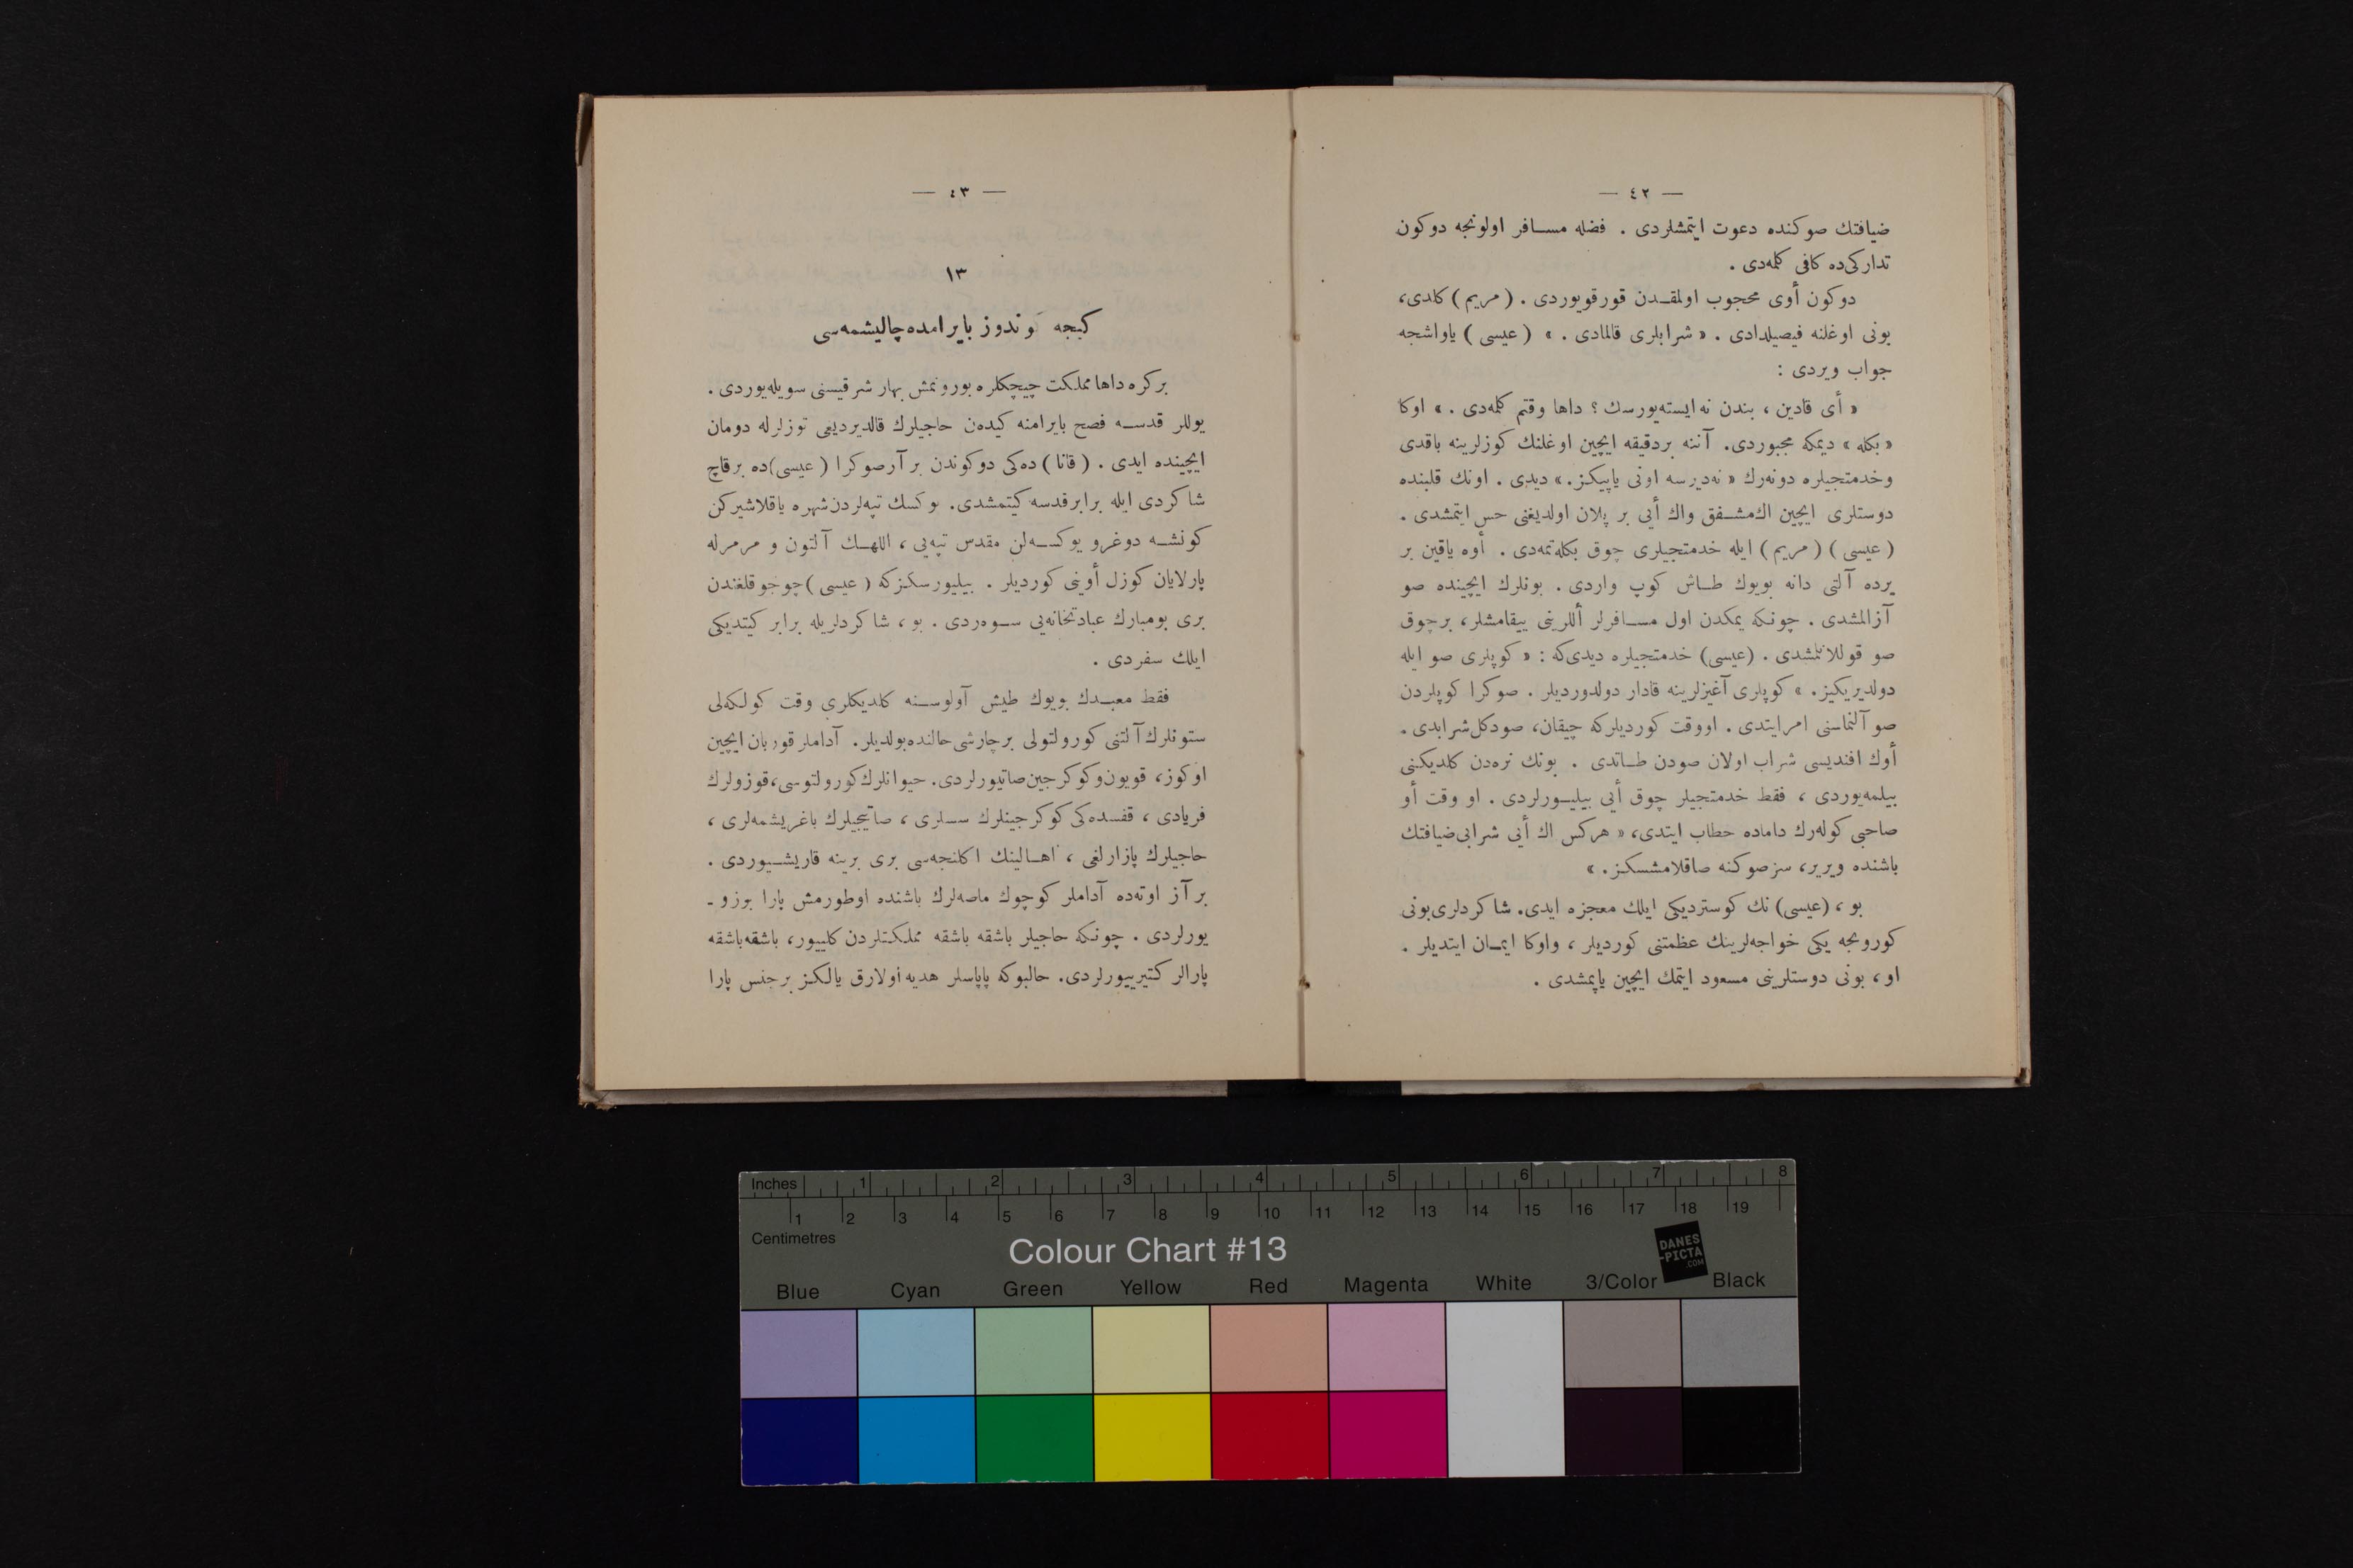 — ٤٢ —
ضيافتك صوكنده دعوت ايتمشلردى . فضله مسافر اولونجه دوكون
تداركى‌ده كافى كلمه‌دى .
دوكون أوى محجوب اولمقدن قورقويوردى . (مريم) كلدى،
بونى اوغلنه فيصيلدادى . « شرابلرى قالمادى . » (عيسى) ياواشجه
جواب ويردى :
« أى قادين ، بندن نه ايسته‌يورسك ؟ داها وقتم كلمه‌دى . » اوكا
« بكله » ديمكه مجبوردى. آننه بردقيقه ايچين اوغلنك كوزلرينه باقدى
وخدمتجيلره دونه‌رك « نه‌ديرسه اونى ياپيكز. » ديدى . اونك قلبنده
دوستلرى ايچين اك‌مشفق واك أيى بر پلان اولديغنى حس ايتمشدى .
(عيسى) (مريم) ايله خدمتجيلرى چوق بكله‌تمه‌دى . أوه ياقين بر
يرده آلتى دانه بويوك طاش كوپ واردى . بونلرك ايچينده صو
آزالمشدى . چونكه يمكدن اول مسافرلر أللرينى ييقامشلر، برچوق
صو قوللانلمشدى . (عيسى) خدمتجيلره ديدى‌كه : « كوپلرى صو ايله
دولديريكيز. » كوپلرى آغيزلرينه قادار دولدورديلر . صوكرا كوپلردن
صو آلنماسنى امرايتدى . اووقت كورديلركه چيقان، صودكل‌شرابدى .
أوك افنديسى شراب اولان صودن طاتدى . بونك نره‌دن كلديكنى
بيلمه‌يوردى ، فقط خدمتجيلر چوق أيى بيليورلردى . او وقت أو
صاحبى كوله‌رك داماده خطاب ايتدى، « هركس اك أيى شرابى‌ضيافتك
باشنده ويرير، سزصوكنه صاقلامشسكز. »
بو ، (عيسى) نك كوسترديكى ايلك معجزه ايدى. شاكردلرى‌بونى
كورونجه يكى خواجه‌لرينك عظمتنى كورديلر ، واوكا ايمان ايتديلر .
او ، بونى دوستلرينى مسعود ايتمك ايچين ياپمشدى .
— ٤٣ —
١٣
كيجه كوندوز بايرامده چاليشمه‌سى
بركره داها مملكت چيچكلره بورونمش بهار شرقيسنى سويله‌يوردى .
يوللر قدسه فصح بايرامنه كيده‌ن حاجيلرك قالديرديغى توزلرله دومان
ايچينده ايدى . (قانا) ده‌كى دوكوندن بر آزصوكرا (عيسى)ده برقاچ
شاكردى ايله برابرقدسه كيتمشدى. يوكسك تپه‌لردن‌شهره ياقلاشيركن
كونشه دوغرو يوكسه‌لن مقدس تپه‌يى ، اللهك آلتون و مرمرله
پارلايان كوزل أوينى كورديلر . بيليورسكزكه (عيسى)چوجوقلغندن
برى بومبارك عبادتخانه‌يى سوه‌ردى . بو ، شاكردلريله برابر كيتديكى
ايلك سفردى .
فقط معبدك بويوك طيش آولوسنه كلديكلرى وقت كولكه‌لى
ستونلرك‌آلتنى كورولتولى برچارشى‌حالنده‌بولديلر. آداملر قوربان ايچين
اوكوز، قويون‌وكوكرجين‌صاتيورلردى. حيوانلرك‌كورولتوسى،قوزولرك
فريادى ، قفسده‌كى كوكرجينلرك سسلرى ، صاتيجيلرك باغريشمه‌لرى ،
حاجيلرك پازارلغى ، اهالينك اكلنجه‌سى برى برينه قاريشيوردى .
بر آز اوته‌ده آداملر كوچوك ماصه‌لرك باشنده اوطورمش پارا بوزو ـ
يورلردى . چونكه حاجيلر باشقه باشقه مملكتلردن كلييور، باشقه‌باشقه
پارالر كتيرييورلردى. حالبوكه پاپاسلر هديه اولارق يالكز برجنس پارا
Inches 1 2 3 4 5 6 7 8
1 2 3 4 5 6 7 8 9 10 11 12 13 14 15 16 17 18 19
Centimetres
Colour Chart #13
DANES
-PICTA
.COM
Blue Cyan Green Yellow Red Magenta White 3/Color Black